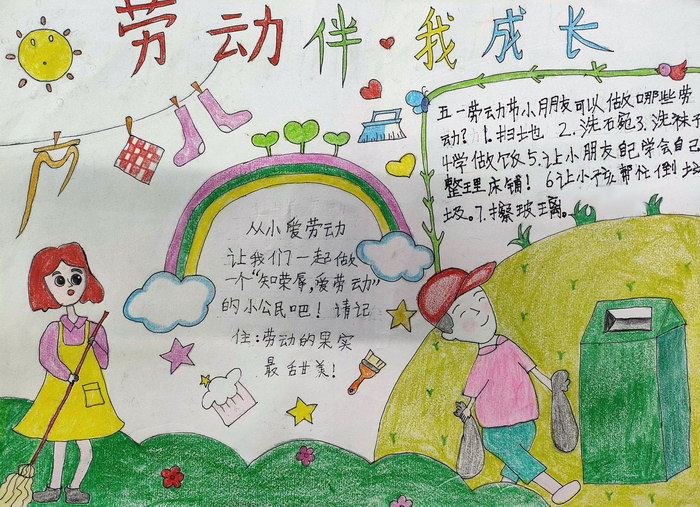 劳动伴我成长
五一劳动节小朋友可以做哪些劳
动？1.扫地 2.洗石碗3.洗袜子
4学做饭5.让小朋友自己学会自己
整理床铺！6让小孩帮忙倒垃
圾。7.擦玻璃。
从小爱劳动
让我们一起做
一个“知荣辱，爱劳动”
的小公民吧！请记
住：劳动的果实
最甜美！